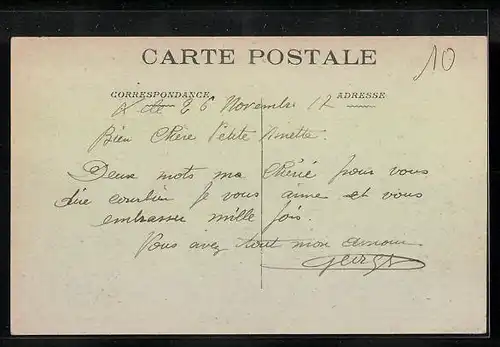 CARTE POSTALE
10
CORRESPONDANCE
ADRESSE
le 26 Novembre 17
Bien Chère Petite Ninette.
Deux mots ma Chérie pour vous
dire combien Je vous aime et vous
embrasser mille fois.
Vous avez tout mon amour
Georges